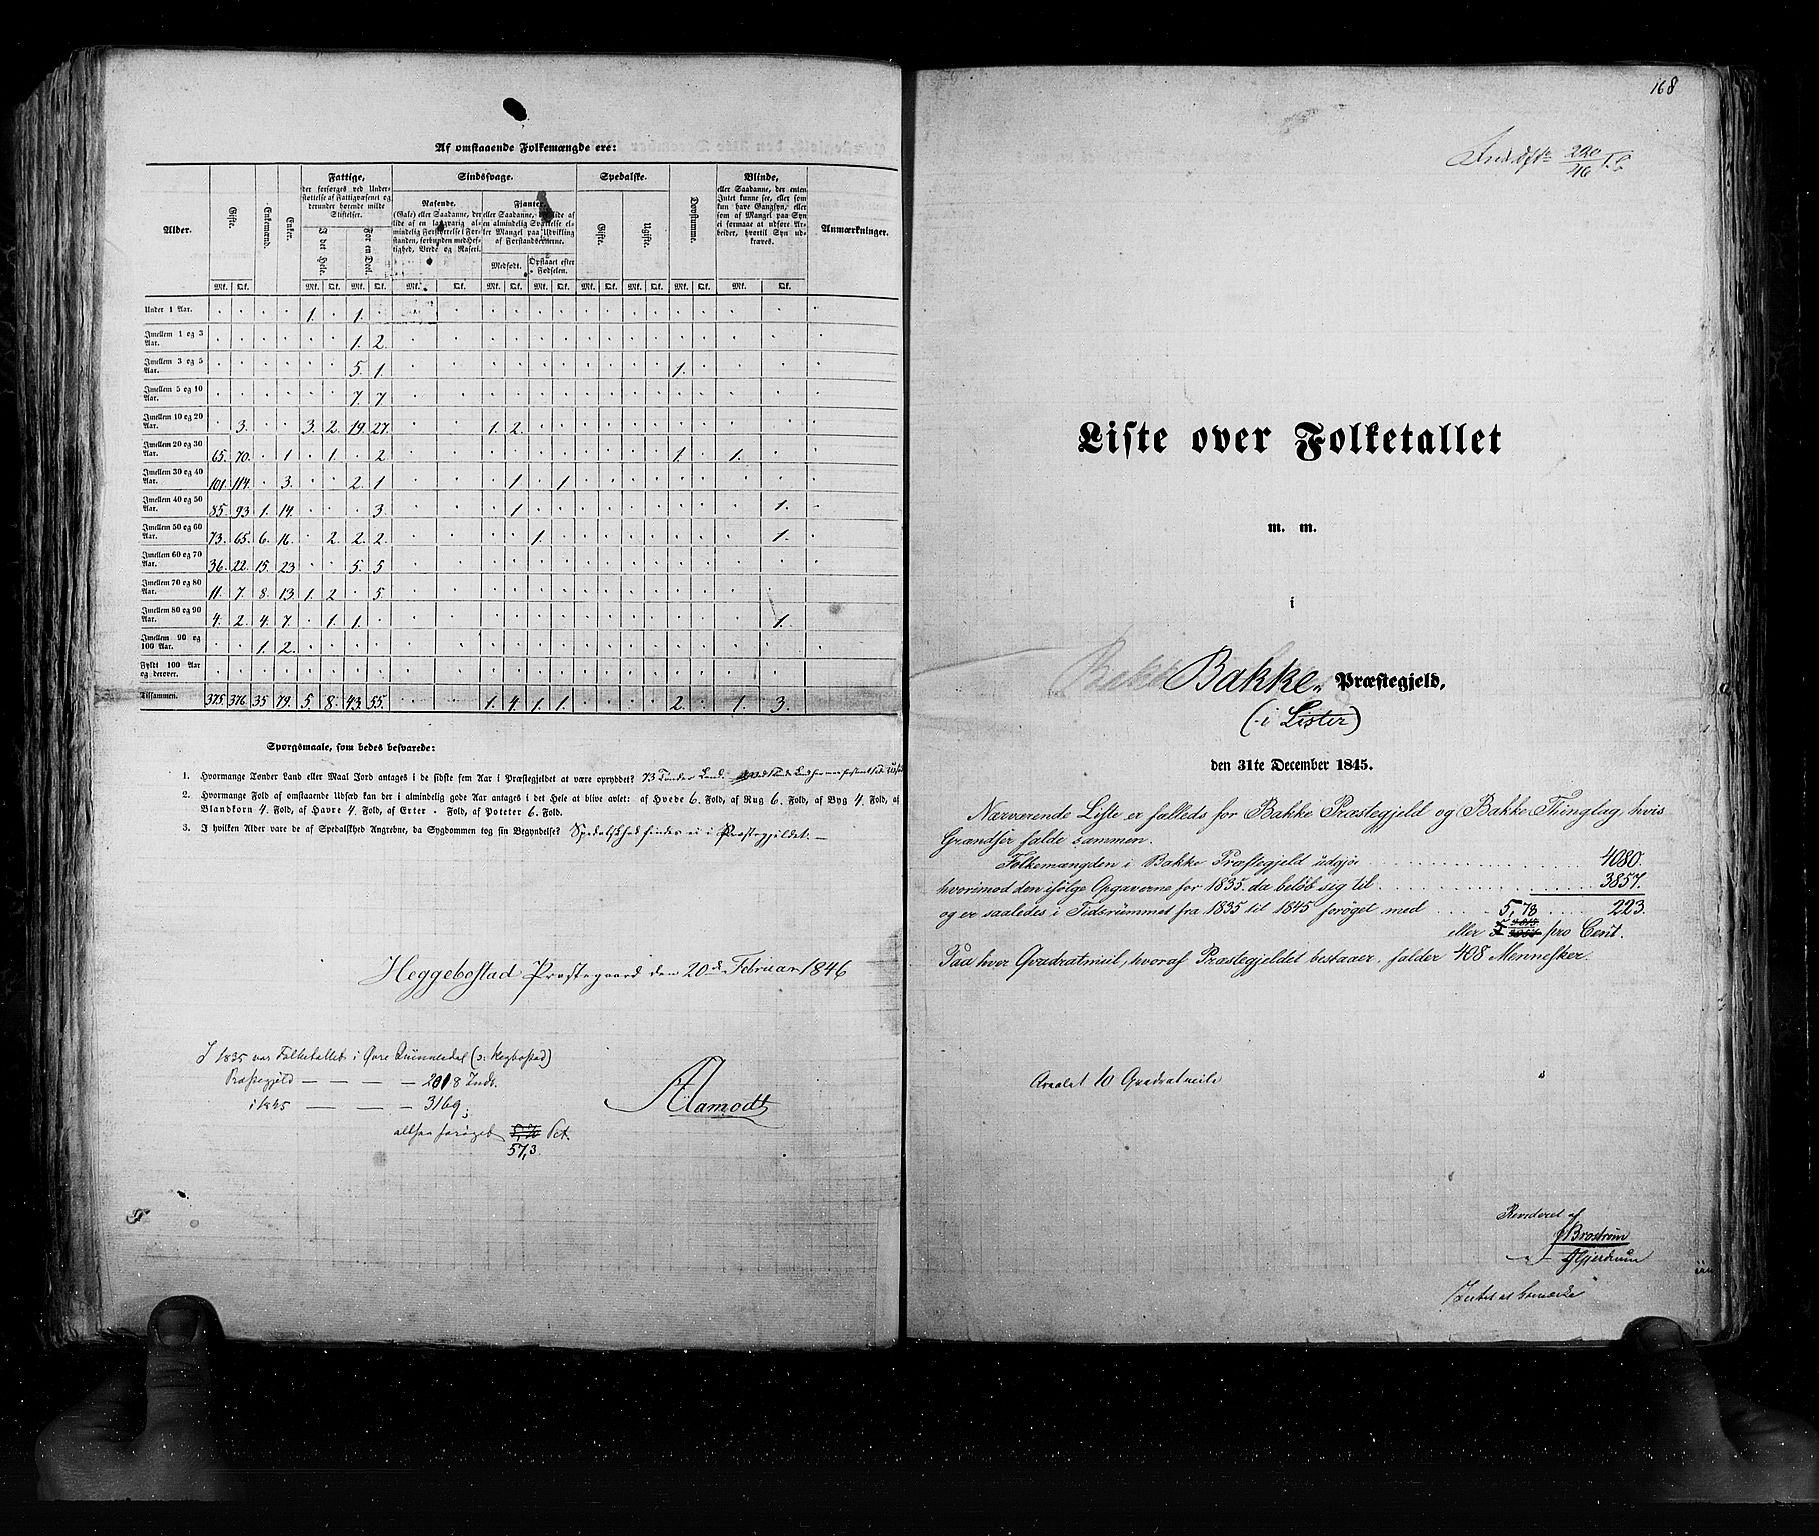 Af omstaaende Folkemængde ere:
Alder. Gifte. Enkemænd. Enker. Fattige, der forsørges ved Understøttelse af Fattigvæsenet og derunder hørende milde Stiftelser. I det Hele. For en Deel. Sindssvage. Rasende. (Gale) eller Saadanne, der lide af en langvarig almindelig Forstyrrelse i Forstanden, forbunden med Heftighed, Vrede og Raseri. Fianter eller Saadanne, der lide af en almindelig Svækkelse eller Mangel paa Udvikling af Forstandsevnerne. Medfødt. Opstaaet efter Fødselen. Spedalske. Gifte. Ugifte. Døvstumme. Blinde, eller Saadanne, der enten Intet kunne see, eller som kun have Gangsyn, eller som af Mangel paa Syn ei formaae at udføre Arbeider, hvortil Syn udkræves. Anmærkninger.
Mk. Qk. Mk. Qk. Mk. Qk. Mk. Qk. Mk. Qk. Mk. Qk. Mk. Qk. Mk. Qk. Mk. Qk. Mk. Qk.
Under 1 Aar. 1. 1.
Imellem 1 og 3 Aar. 1. 2.
Imellem 3 og 5 Aar. 5. 1. 1.
Imellem 5 og 10 Aar. 7. 7
Imellem 10 og 20 Aar. 3. 3. 2. 19. 27. 1. 2.
Imellem 20 og 30 Aar. 65. 70. 1 1. 2 1. 1.
Imellem 30 og 40 Aar. 101. 114. 3. 2. 1 1. 1
Imellem 40 og 50 Aar. 85. 93 1. 14. 3 1. 1.
Imellem 50 og 60 Aar. 73. 65. 6. 16. 2. 2. 2. 1. 1.
Imellem 60 og 70 Aar. 36. 22. 15. 23 5. 5
Imellem 70 og 80 Aar. 11. 7. 8. 13. 1. 2 5.
Imellem 80 og 90 Aar. 4. 2. 4. 7. 1. 1. 1.
Imellem 90 og 100 Aar. 1. 2.
Fyldt 100 Aar og derover.
Tilsammen. 375. 376 35 79. 5. 8. 43. 55. 1. 4. 1. 1. 2. 1. 3.
Spørgsmaale, som bedes besvarede:
1. Hvormange Tønder Land eller Maal Jord antages i de sidste fem Aar i Præstegjeldet at være opryddet? 73 Tønder Land.
2. Hvormange Fold af omstaaende Udsæd kan der i almindelig gode Aar antages i det Hele at blive avlet: af Hvede 6. Fold, af Rug 6. Fold, af Byg 4. Fold, af
Blandkorn 4. Fold, af Havre 4. Fold, af Erter - Fold, af Poteter 6. Fold.
3. I hvilken Alder vare de af Spedalskhed Angrebne, da Sygdommen tog sin Begyndelse? Spedalskhed findes ei i Præstegjeldet. —
Heggebostad Præstegaard den 20de Februar 1846
I 1835 var Folketallet i Øvre Qvinnesdal (ɔ: Hegbostad)
Præstegjeld — — — — 2018 Indv.
i 1845 — — — 3169;
altsaa forøget Pct.
57,3.
Aamodt
168
Liste over Folketallet
m. m.
i
Bakke Præstegjeld,
(i Lister)
den 31te December 1845.
Nærværende Liste er fælleds for Bakke Præstegjeld og Bakke Thinglag, hvis
Grændser falde sammen.
Folkemængden i Bakke Præstegjeld udgjør . . . . . . 4080.
hvorimod den ifølge Opgaverne for 1835 da beløb sig til . . . . . . 3857.
og er saaledes i Tidsrummet fra 1835 til 1845 forøget med . . . . . . 223.
5,78
eller pro Cent.
Paa hver Qvadratmiil, hvoraf Præstegjeldet bestaaer, falder 408 Mennesker.
Arealet 10 Qvadratmile
Revideret af
Brostrøm
Gjerdrum
Intet at bemærke